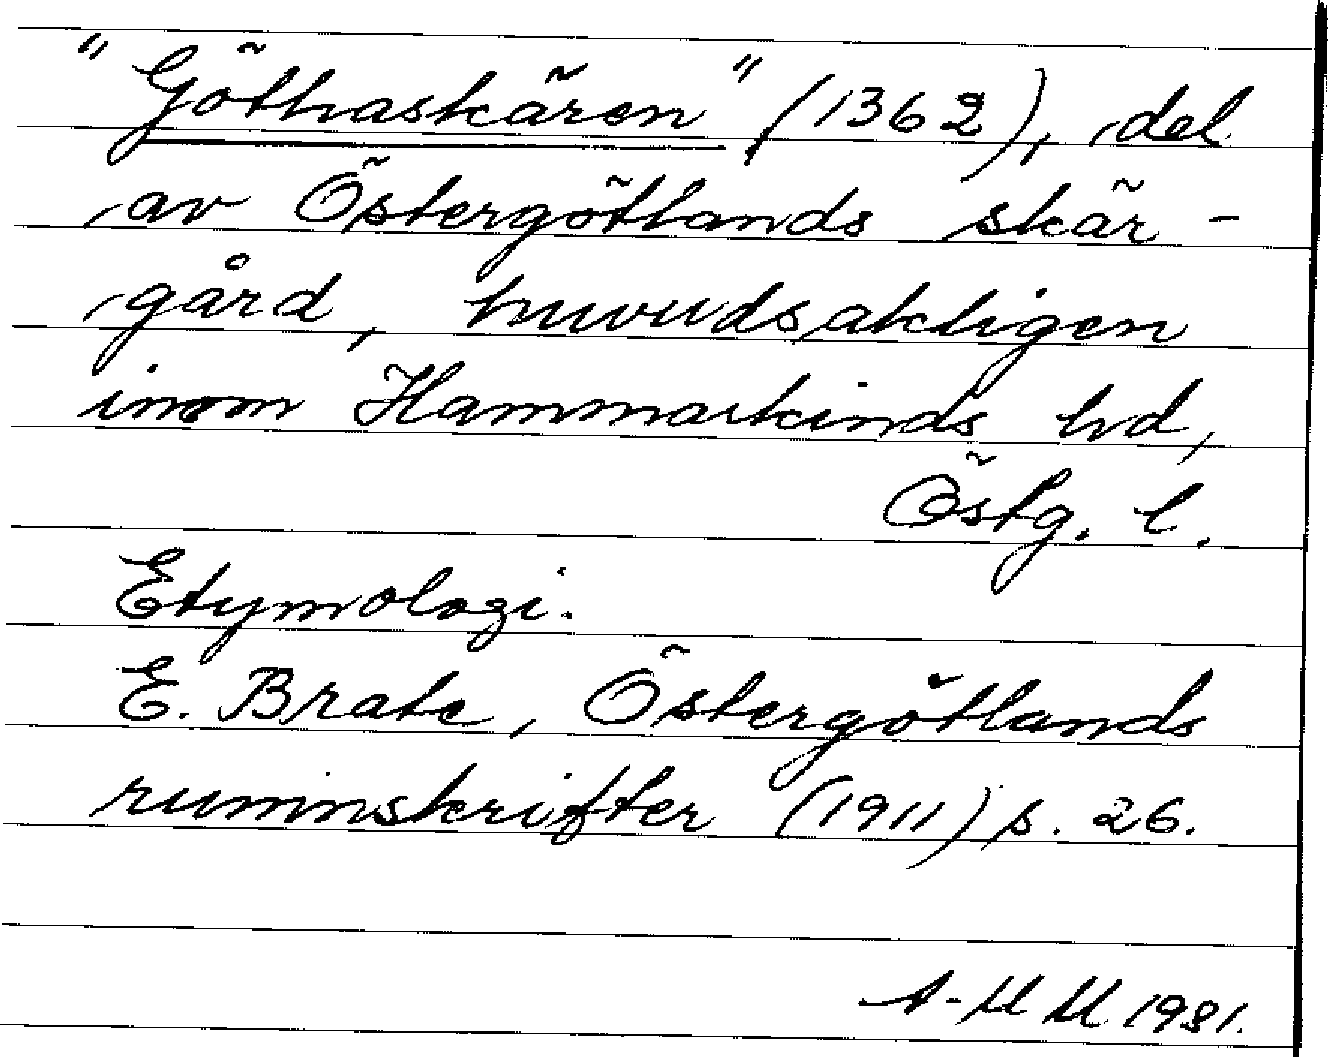 "Göthaskären" (1362), del
av Östergötlands skär-
gård, huvudsakligen
inom Hammarkinds hd,
Östg. l.
Etymologi.
E. Brate, Östergötlands
runinskrifter (1911) s. 26.
A-MM 1981.